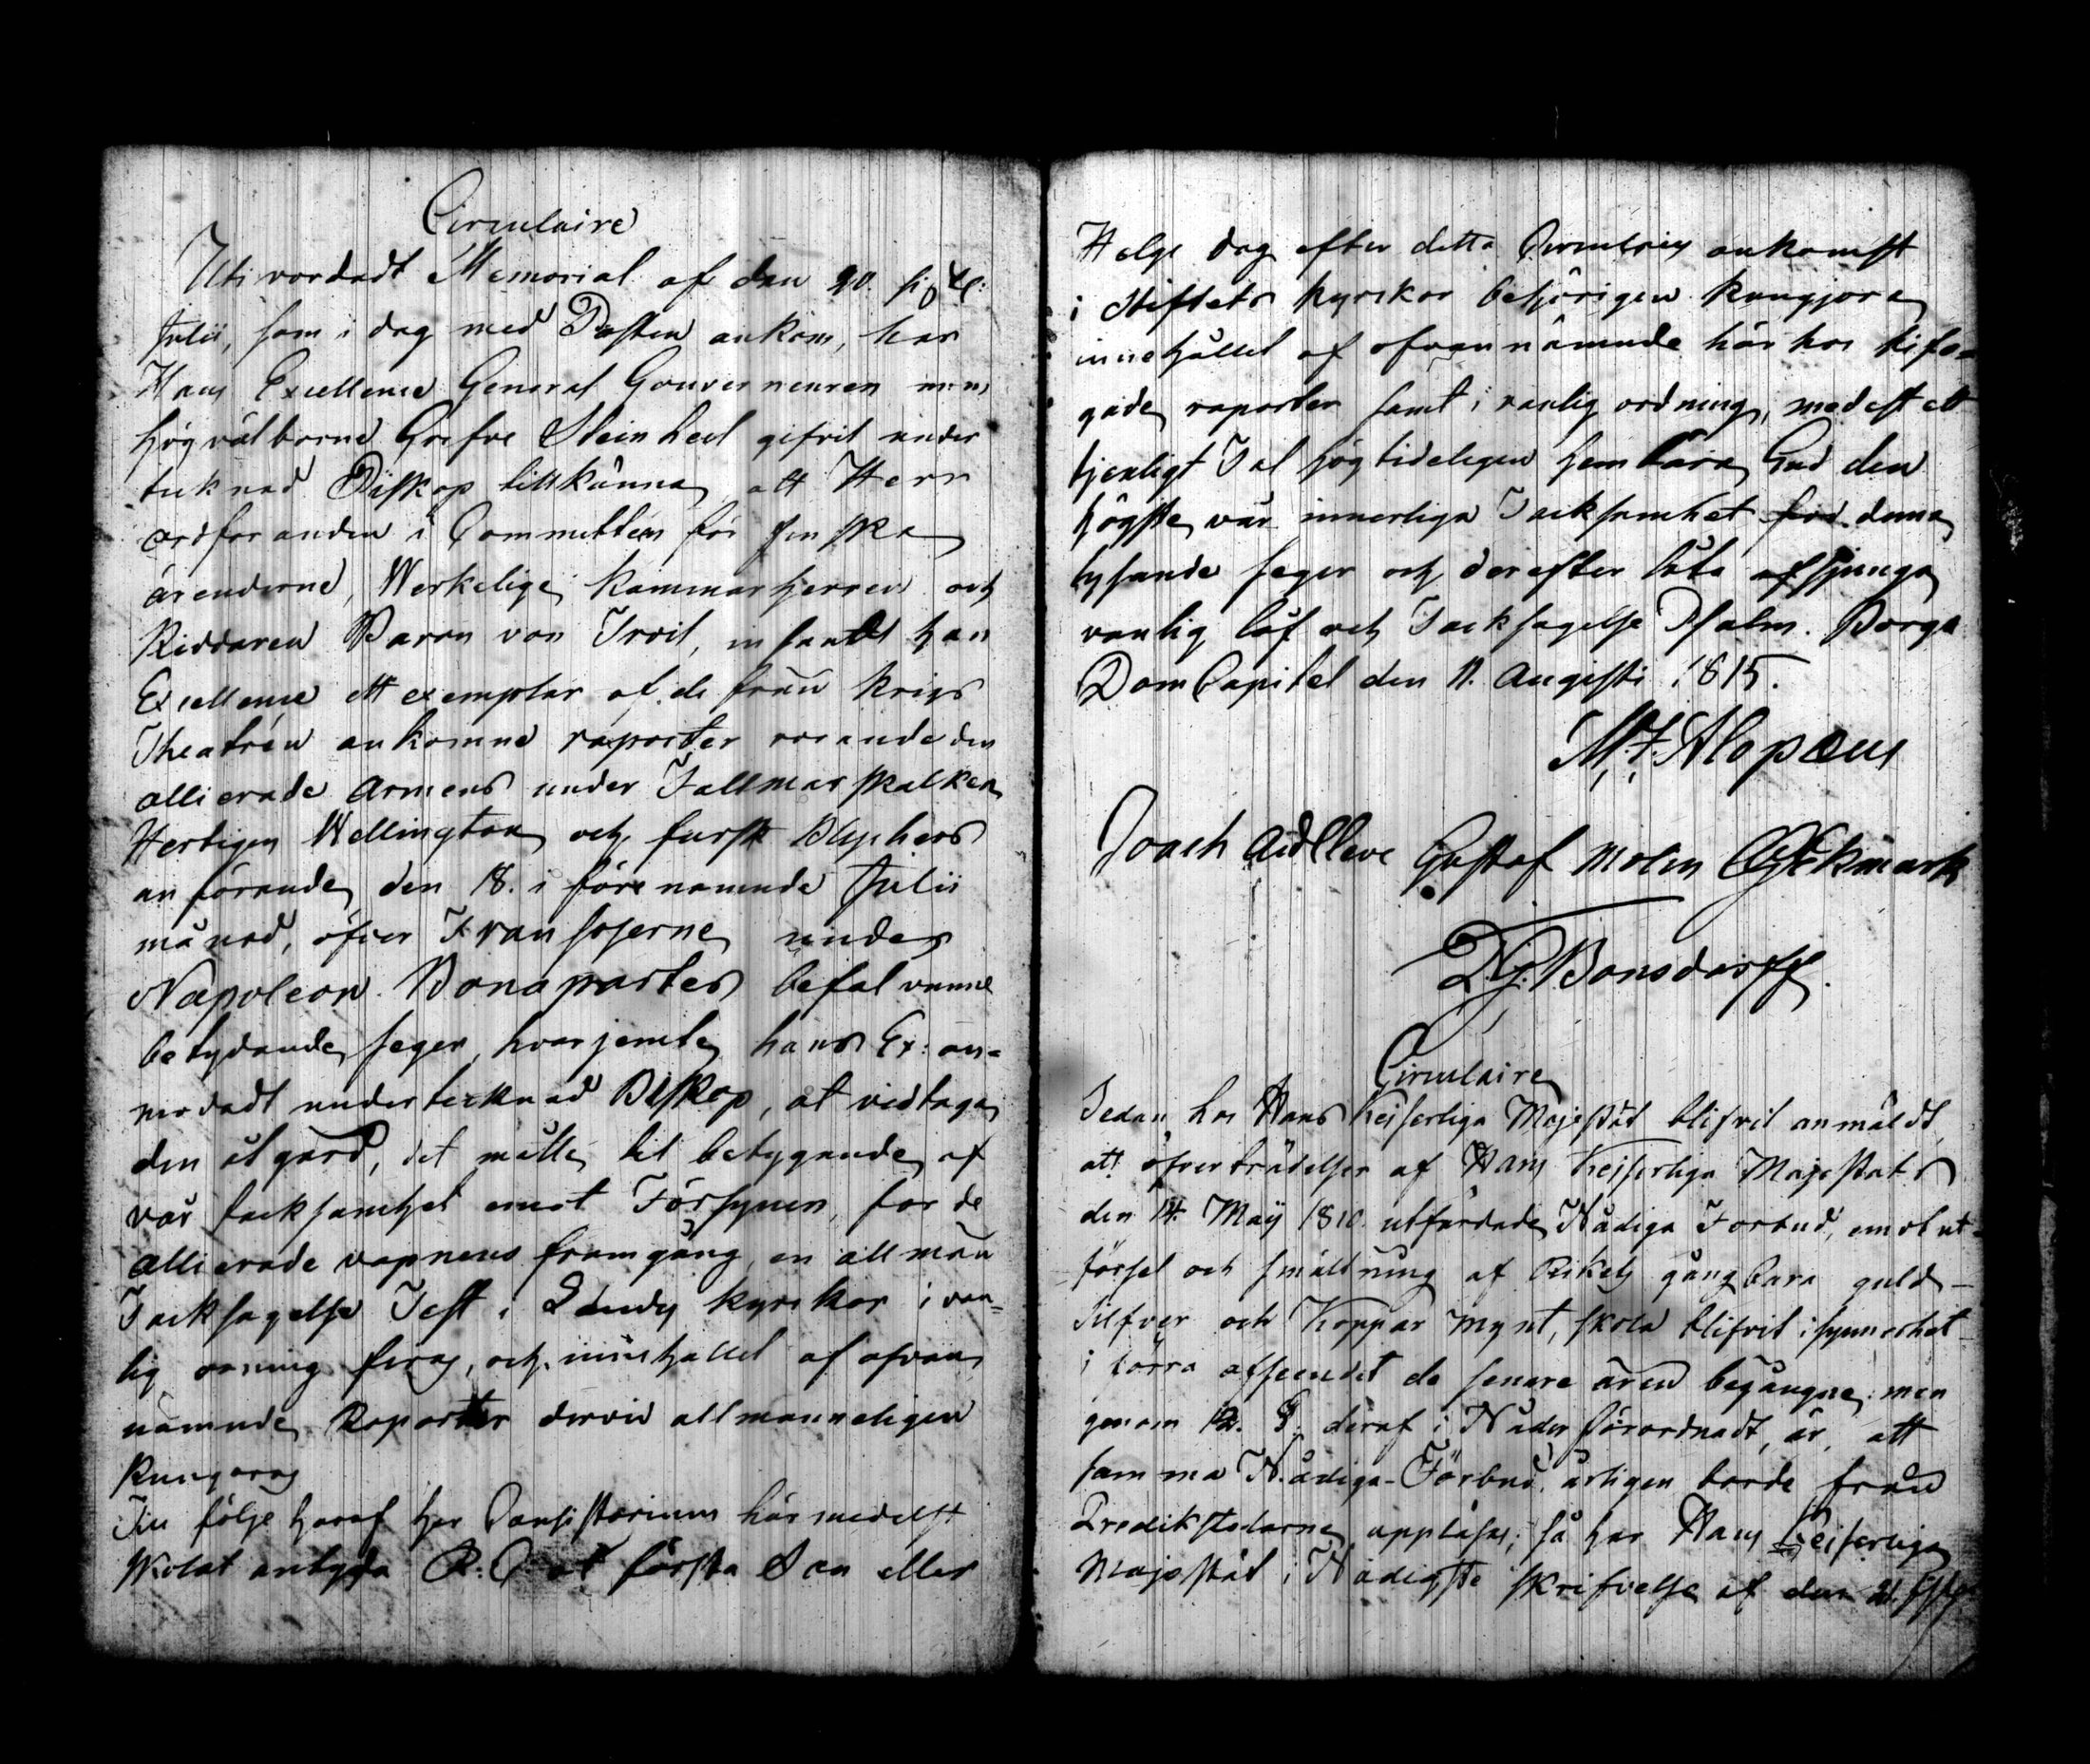 Circulaire
Uti vördadt Memorial af den 20. sistl:
Julii, som i dag med Posten ankom, har
Hans Excellence General Gouverneuren m.m.
högvälborne Grefve Steinheil gifvit under
tecknad Biskop tillkänna, att Herr
ordföranden i Committén för finska
ärenderne, Werkelige Kammarherren och
Riddaren Baron von Troil, insandt hans
Excellence ett exemplar af de från krigs
Theatren ankomne raporter rörande den
allierade armens under Fältmarskalken
Hertigen Wellington och furst Blychers
anförande den 18. i förenämnde Julii
månad, öfver Fransoserne under
Napoleon Bonapartes befäl vunne
betydande seger, hvarjemte hans Ex: an-
modadt undertecknad Biskop, at vidtaga
den åtgärd, det måtte til betygande af
vår tacksamhet emot Försynen, för de
allierade vapnens framgång en allmän
Tacksägelse Fest i Landts kyrckor i van-
lig ordning firas, och innehållet af ofvan
nämnde Raporter dervid allmänneligen
kungöras
Till följe häraf har Consistorium härmedelst
skolat antyda R: C at första Sön eller
Helge dag efter detta Circulairs ankomst
i Stiftets kyrckor behörigen kungjöra
innehållet af ofvannämnde här hos bifo-
gade raporter samt i vanlig ordning, medelst ett
tjenligt Tal högtideligen hembära Gud den
högste vår innerliga Tacksamhet för denna
lysande seger och derefter låta afsjunga
vanlig låf och Tacksägelse Psalm. Borgå
DomCapitel den 11. Augusti 1815.
M. J. Alopæus
Joach Gustaf Molin Ekmark
Bonsdorff.
Circulaire
Sedan hos Hans Kejserliga Majestät blifvit anmäldt,
att öfverträdelser af Hans Kejserliga Majestäts
den 14. Maij 1810. utfärdade Nådiga Förbud, emot ut-
försel och smältning af Rikets gångbara guld-
Silfver och Koppar mynt, skola blifvit i synnerhet
i större afseendet de senare åren begångne; men
genom 12. §. deraf i Nåder förordnadt, är, att
samma Nådiga Förbud årligen borde från
Predikstolarne uppläsas; så har Hans Kejserliga
Majestät i Nådigste skrifvelse af den 21.